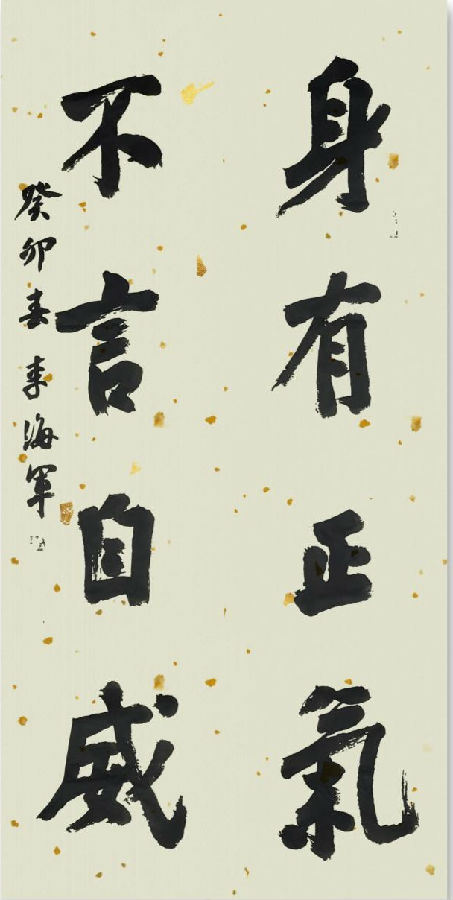 身有正氣
不言自威
癸卯春李海軍